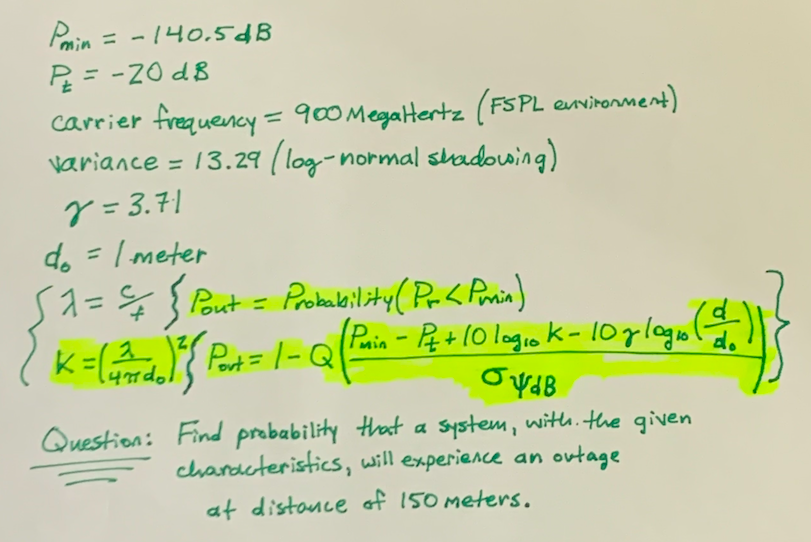 Pmin = -140.5dB
Pt = -20 dB
carrier frequency = 900 MegaHertz (FSPL environment)
variance = 13.29 (log-normal shadowing)
γ = 3.71
d₀ = 1 meter
{ λ = c/f } Pout = Probability(Pr < Pmin)
K = (λ/4πd₀)² { Pout = 1 - Q(Pmin - Pt + 10 log₁₀ K - 10 γ log₁₀ (d/d₀) / σψdB) }
Question: Find probability that a system, with the given
characteristics, will experience an outage
at distance of 150 meters.